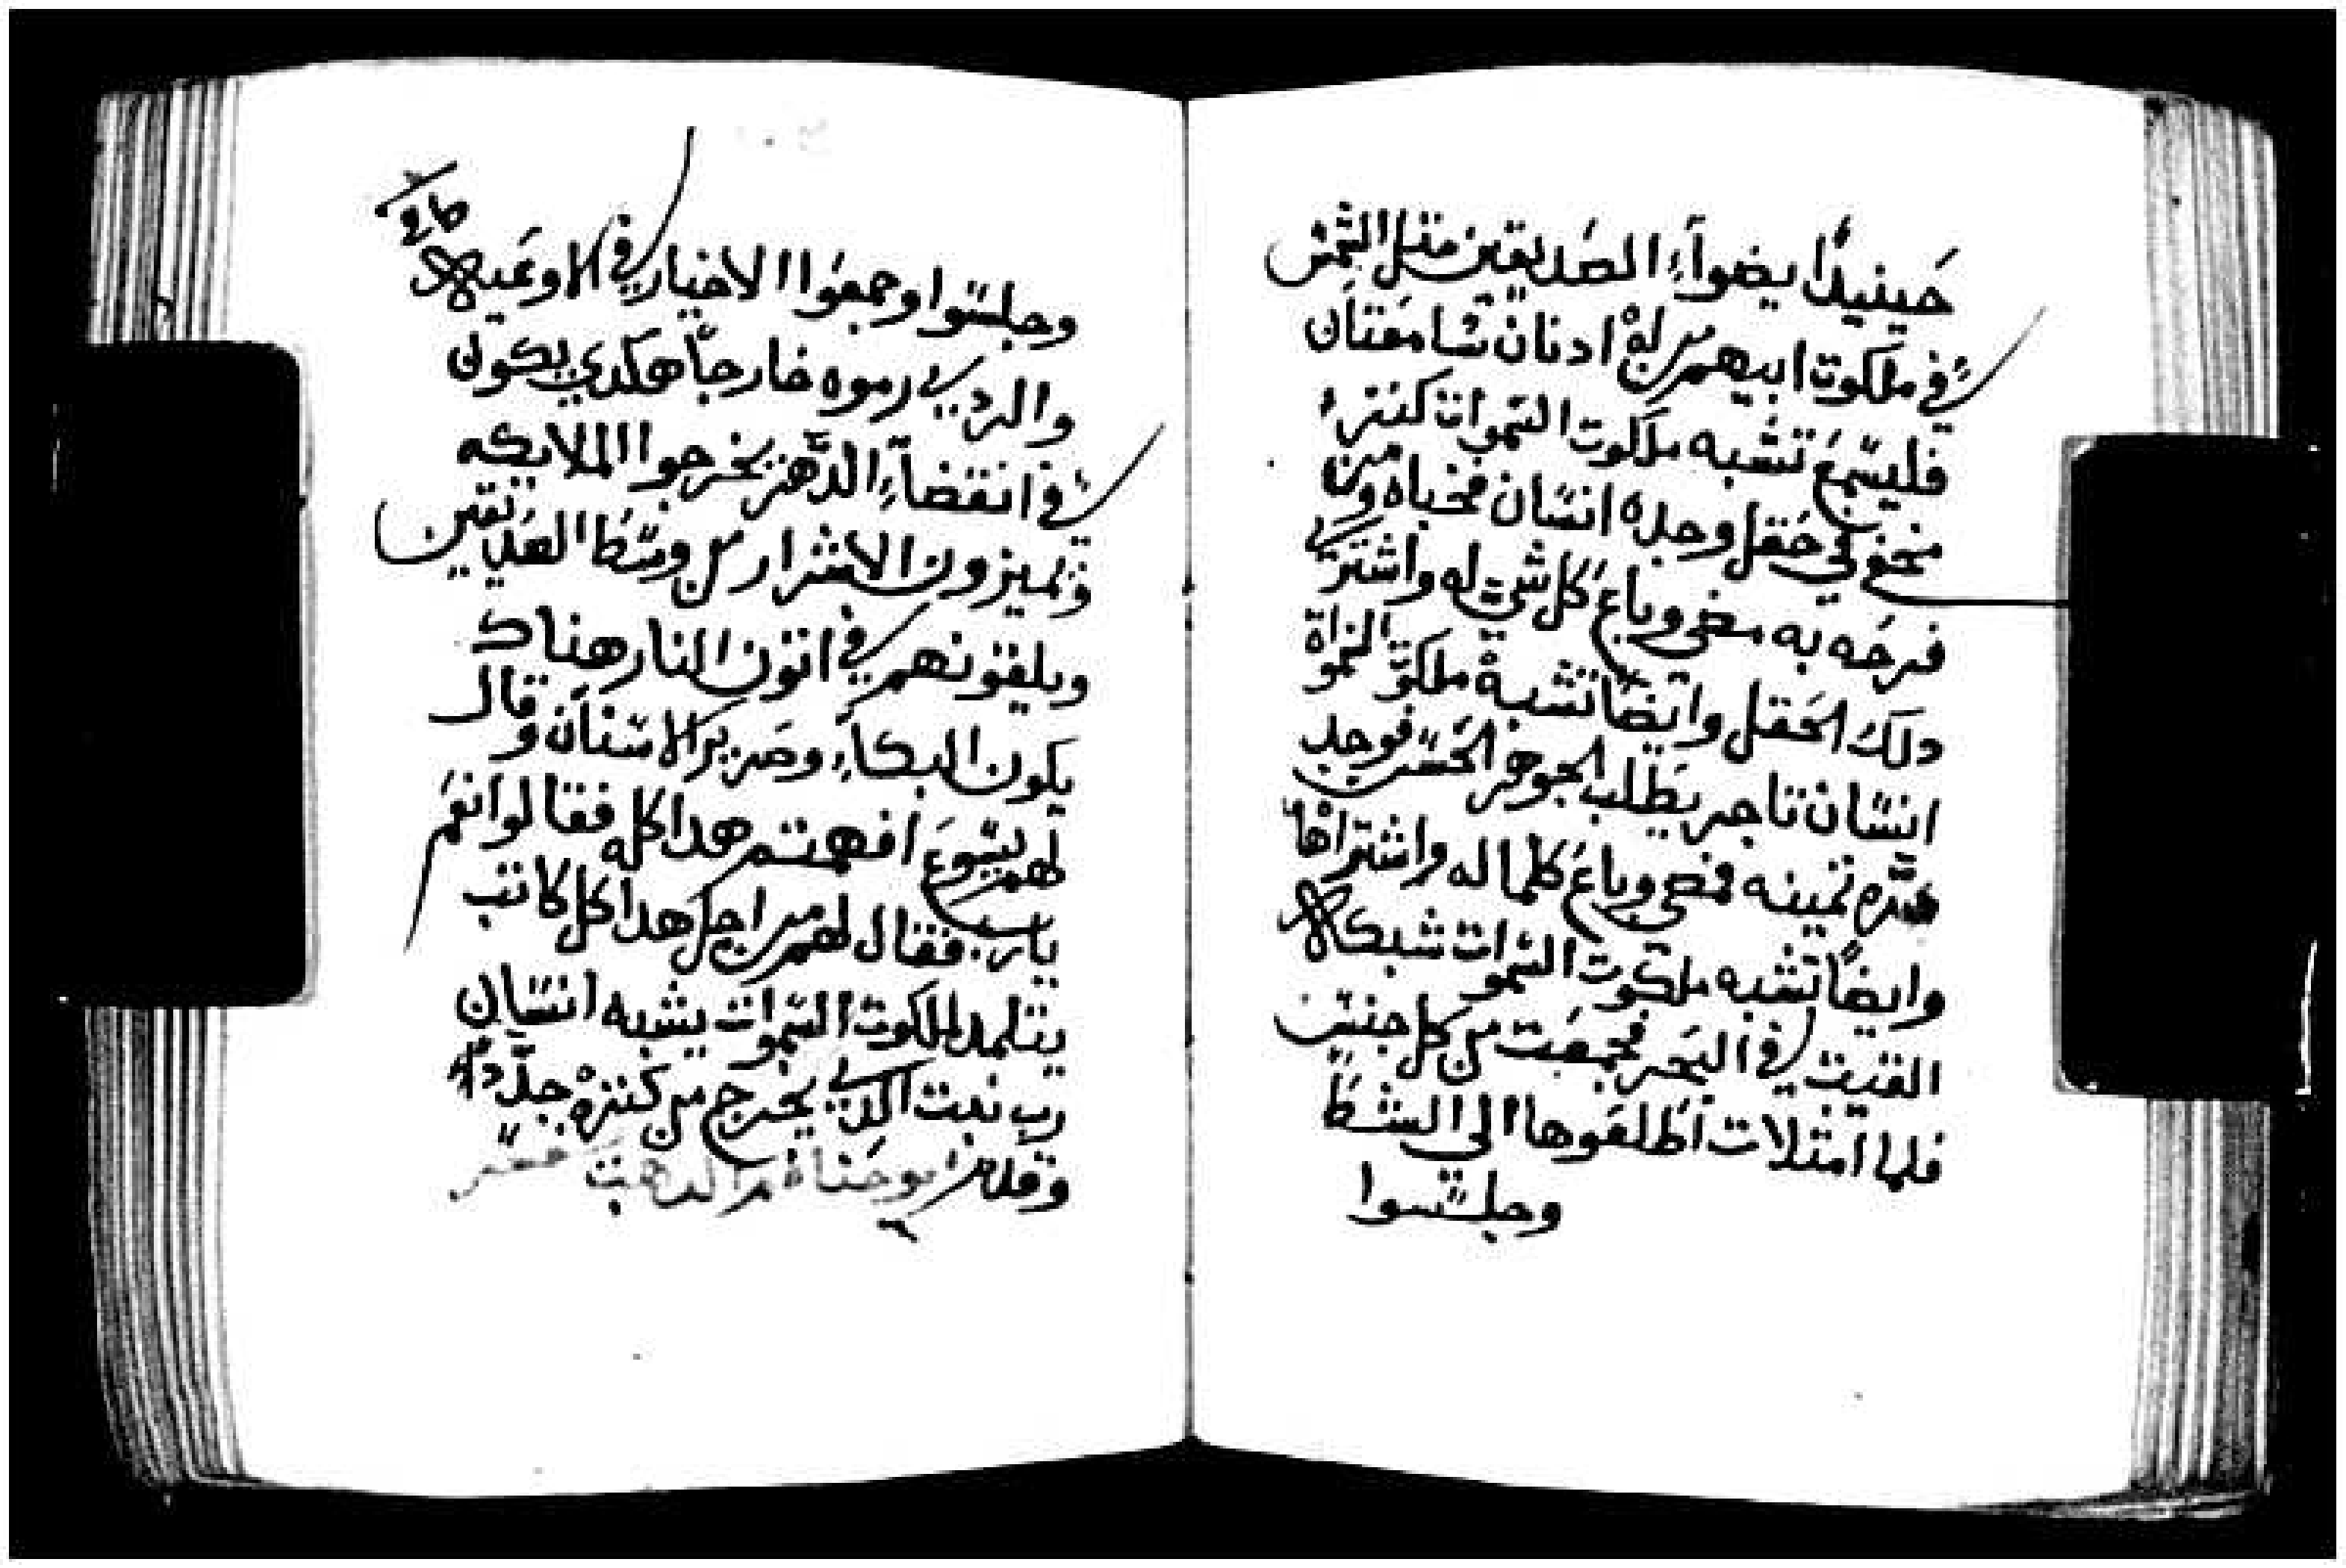 حينيدًا يضوآءِ الصديقين مثل الشمس
في ملكوت ابيهم من له ادنان سامعتان
فليسمع تشبه ملكوت السموات كنزء
مخفي في حقل وجده انسان فخباه ومن
فرحه به مضي وباع كل شي له واشتري
دلك الحقل وايضًا تشبه ملكوة السموات
انسان تاجر يطلب الجوهر الحسن فوجد
درّه تمينه فمضي وباع كلما له واشتراها
وايضًا تشبه ملكوت السموات شبكة
القيت في البحر فجمعت من كل جنس
فلما امتلات اطلعوها الي الشط
وجلسوا
٤٥
وجلسوا وجمعوا الاخيار في الاوعية
والردي رموه خارجًا هكدي يكون
في انقضآءِ الدهر يخرجوا الملايكه
ويميزون الاشرار من وسط الصديقين
ويلقونهم في اتون النار هناك
يكون البكاءِ وصرير الاسنان وقال
لهم يسوع افهمتم هدا كله فقالوا نعم
يارب فقال لهم من اجل هدا كل كاتب
يتلمد لملكوت السموات يشبه انسان
رب بيت الدي يخرج من كنزه جدد
يوحنا فم الدهب